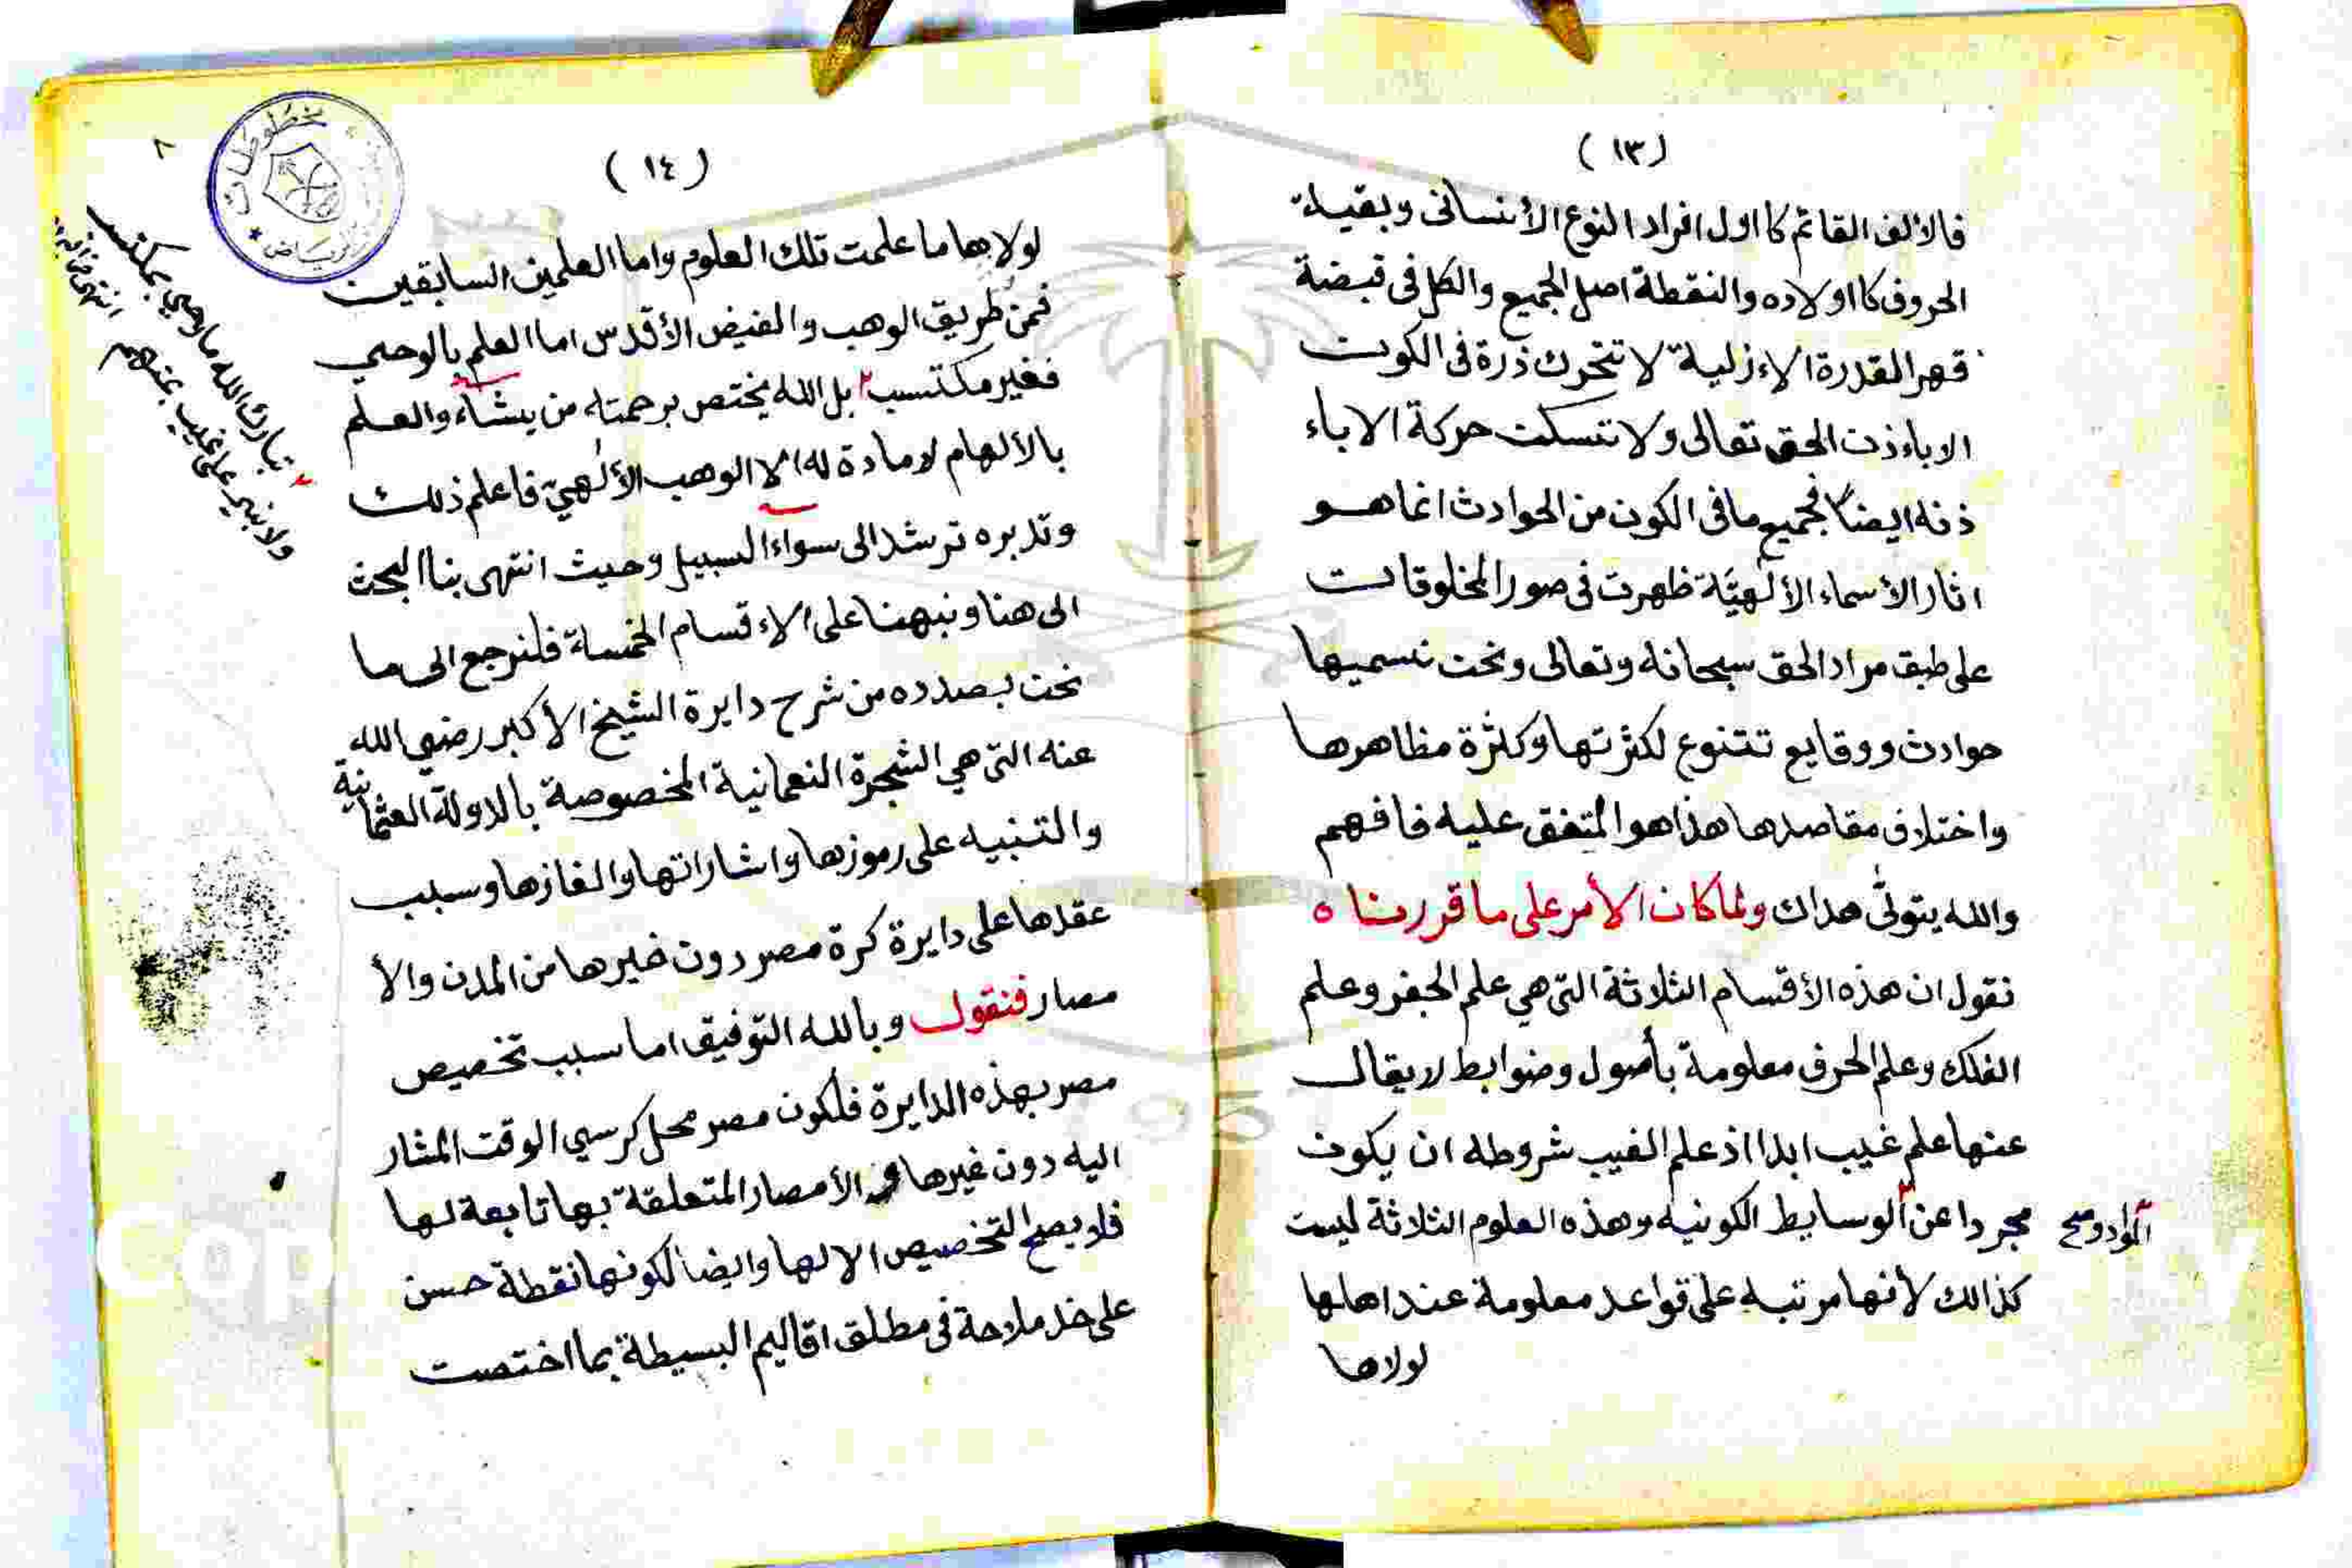 (١٣)
فالالف القائم كااول افراد النوع الأنسانى وبقية
الحروف كااولاده والنقطة اصل الجميع والكل فى قبضة
قهر القدرة الاءزلية لا تتحرك ذرة فى الكون
الاباءذن الحق تعالى ولا تسكن حركة الاباء
ذنه ايضا فجميع ما فى الكون من الحوادث انما هو
اثار الأسماء الألهيّة ظهرت فى صور المخلوقات
على طبق مراد الحق سبحانه وتعالى ونحن نسميها
حوادث ووقايع تتنوع لكثرتها وكثرة مظاهرها
واختلاف مقاصدها هذا هو المتفق عليه فافهم
والله يتولّى هداك ولما كان الأمر على ما قررناه
نقول ان هذه الأقسام الثلاثة التى هي علم الجفر وعلم
الفلك وعلم الحرف معلومة بأصول وضوابط لا يقال
عنها علم غيب ابدا اذ علم الغيب شروطه ان يكون
مجردا عن الوسايط الكونيه وهذه العلوم الثلاثة ليست
المواد وصح
كذالك لأنها مرتبه على قواعد معلومة عند اهلها
لولاها
(١٤)
٨
مخطوطات
الرياض
لولاها ما علمت تلك العلوم واما العلمين السابقين
فمن طريق الوهب والفيض الأقدس اما العلم بالوحي
فغير مكتسب بل الله يختص برحمته من يشاء والعلم
بالألهام لا مادة له الا الوهب الألهيّ فاعلم ذلك
وتدبره ترشد الى سواء السبيل وحيث انتهى بنا البحث
الى هنا ونبهنا على الاءقسام الخمسة فلنرجع الى ما
نحن بصدده من شرح دايرة الشيخ الأكبر رضي الله
عنه التى هي الشجرة النعمانية المخصوصة بالدولة العثمانية
والتنبيه على رموزها واشاراتها والغازها وسبب
عقدها على دايرة كرة مصر دون غيرها من المدن والأ
مصار فنقول وبالله التوفيق اما سبب تخصيص
مصر بهذه الدايرة فلكون مصر محل كرسي الوقت المشار
اليه دون غيرها والأمصار المتعلقة بها تابعة لها
فلا يصح التخصيص الا لها وايضا لكونها نقطة حسن
على خد ملاحة فى مطلق اقاليم البسيطة بما اختصت
تبارك الله ما وحي بمكتسب
ولا نبي على غيب بمتهم
انتهى من